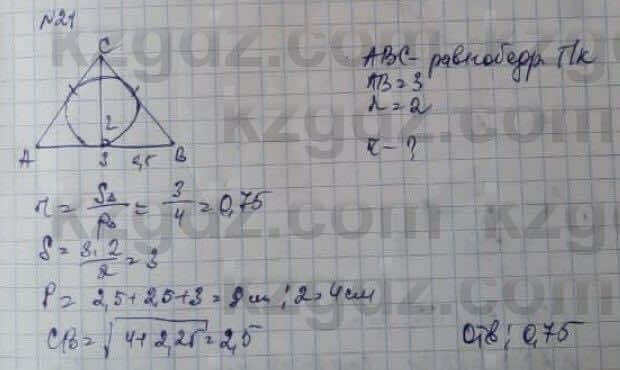 №21
C
ABC - равнобедр. Пк
AB=3
h=2
r - ?
2
A 3 1,5 B
r = SΔ/p = 3/4 = 0,75
S = 3·2/2 = 3
P = 2,5+2,5+3=8 см; 2=4 см
CB=√4+2,25=2,5
Отв: 0,75
kzgdz.com